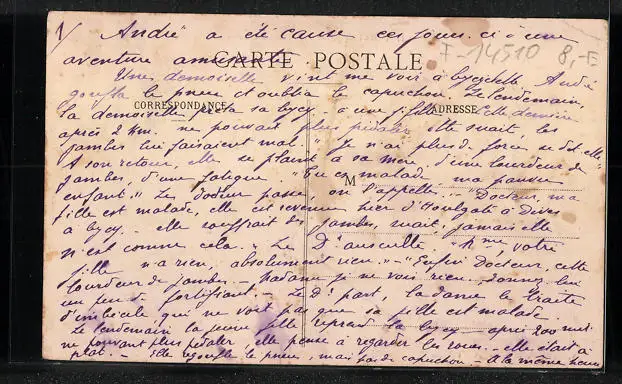 1/ André a été cause ces jours-ci d'une
aventure amusante
CARTE POSTALE
F-14510 8,-E
Une demoiselle vint me voir à bicyclette André
gonfla le pneu et oublia le capuchon. Le lendemain,
CORRESPONDANCE
ADRESSE
la demoiselle prêta sa bicy. à une fille Cette dernière
après 2 km. ne pouvait plus pédaler elle suait, les
jambes lui faisaient mal. "Je n'ai plus de force se dit-elle"
A son retour, elle se plaint à sa mère, d'une lourdeur de
M
jambes, d'une fatigue. "Tu es malade ma pauvre
enfant". Le docteur passe, on l'appelle. "Docteur, ma
fille est malade, elle est revenue hier d'Houlgate à Dives
à bicy. elle souffrait des jambes, mais, jamais elle
n'est comme cela." Le Dr ausculte. "Mme, votre
fille n'a rien, absolument rien." "Enfin Docteur, cette
lourdeur de jambes. - Madame je ne vois rien. Donnez-lui
un peu de fortifiant. - Le Dr part, la dame le traite
d'imbécile qui ne voit pas que sa fille est malade.
Le lendemain la jeune fille reprend la bicy - après 200 met.
ne pouvant plus pédaler, elle pense à regarder les roues. - elle était à
plat. - Elle regonfle le pneu, mais pas de capuchon. A la même heure